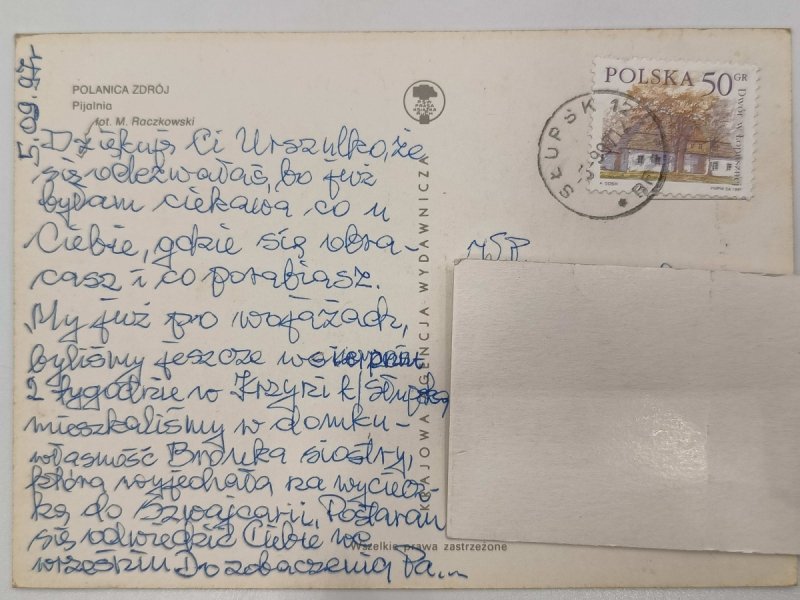 5.09.97r
POLANICA ZDRÓJ
Pijalnia
fot. M. Raczkowski
Dziękuję Ci Urszulko, że
się odezwałaś, bo już
byłam ciekawa co u
Ciebie, gdzie się obra-
casz i co porabiasz.
My już po wojażach,
byliśmy jeszcze w
2 tygodnie w Krzyni k/Słupska
mieszkaliśmy w domku-
własność Bronka siostry,
która wyjechała na wyciecz-
kę do Szwajcarii. Postaram
się odwiedzić Ciebie we
wrześniu Do zobaczenia, Pa...
KRAJOWA AGENCJA WYDAWNICZA
Wszelkie prawa zastrzeżone
POLSKA 50 GR
Dwór w Łopusznej
SŁUPSK 1
WSP.